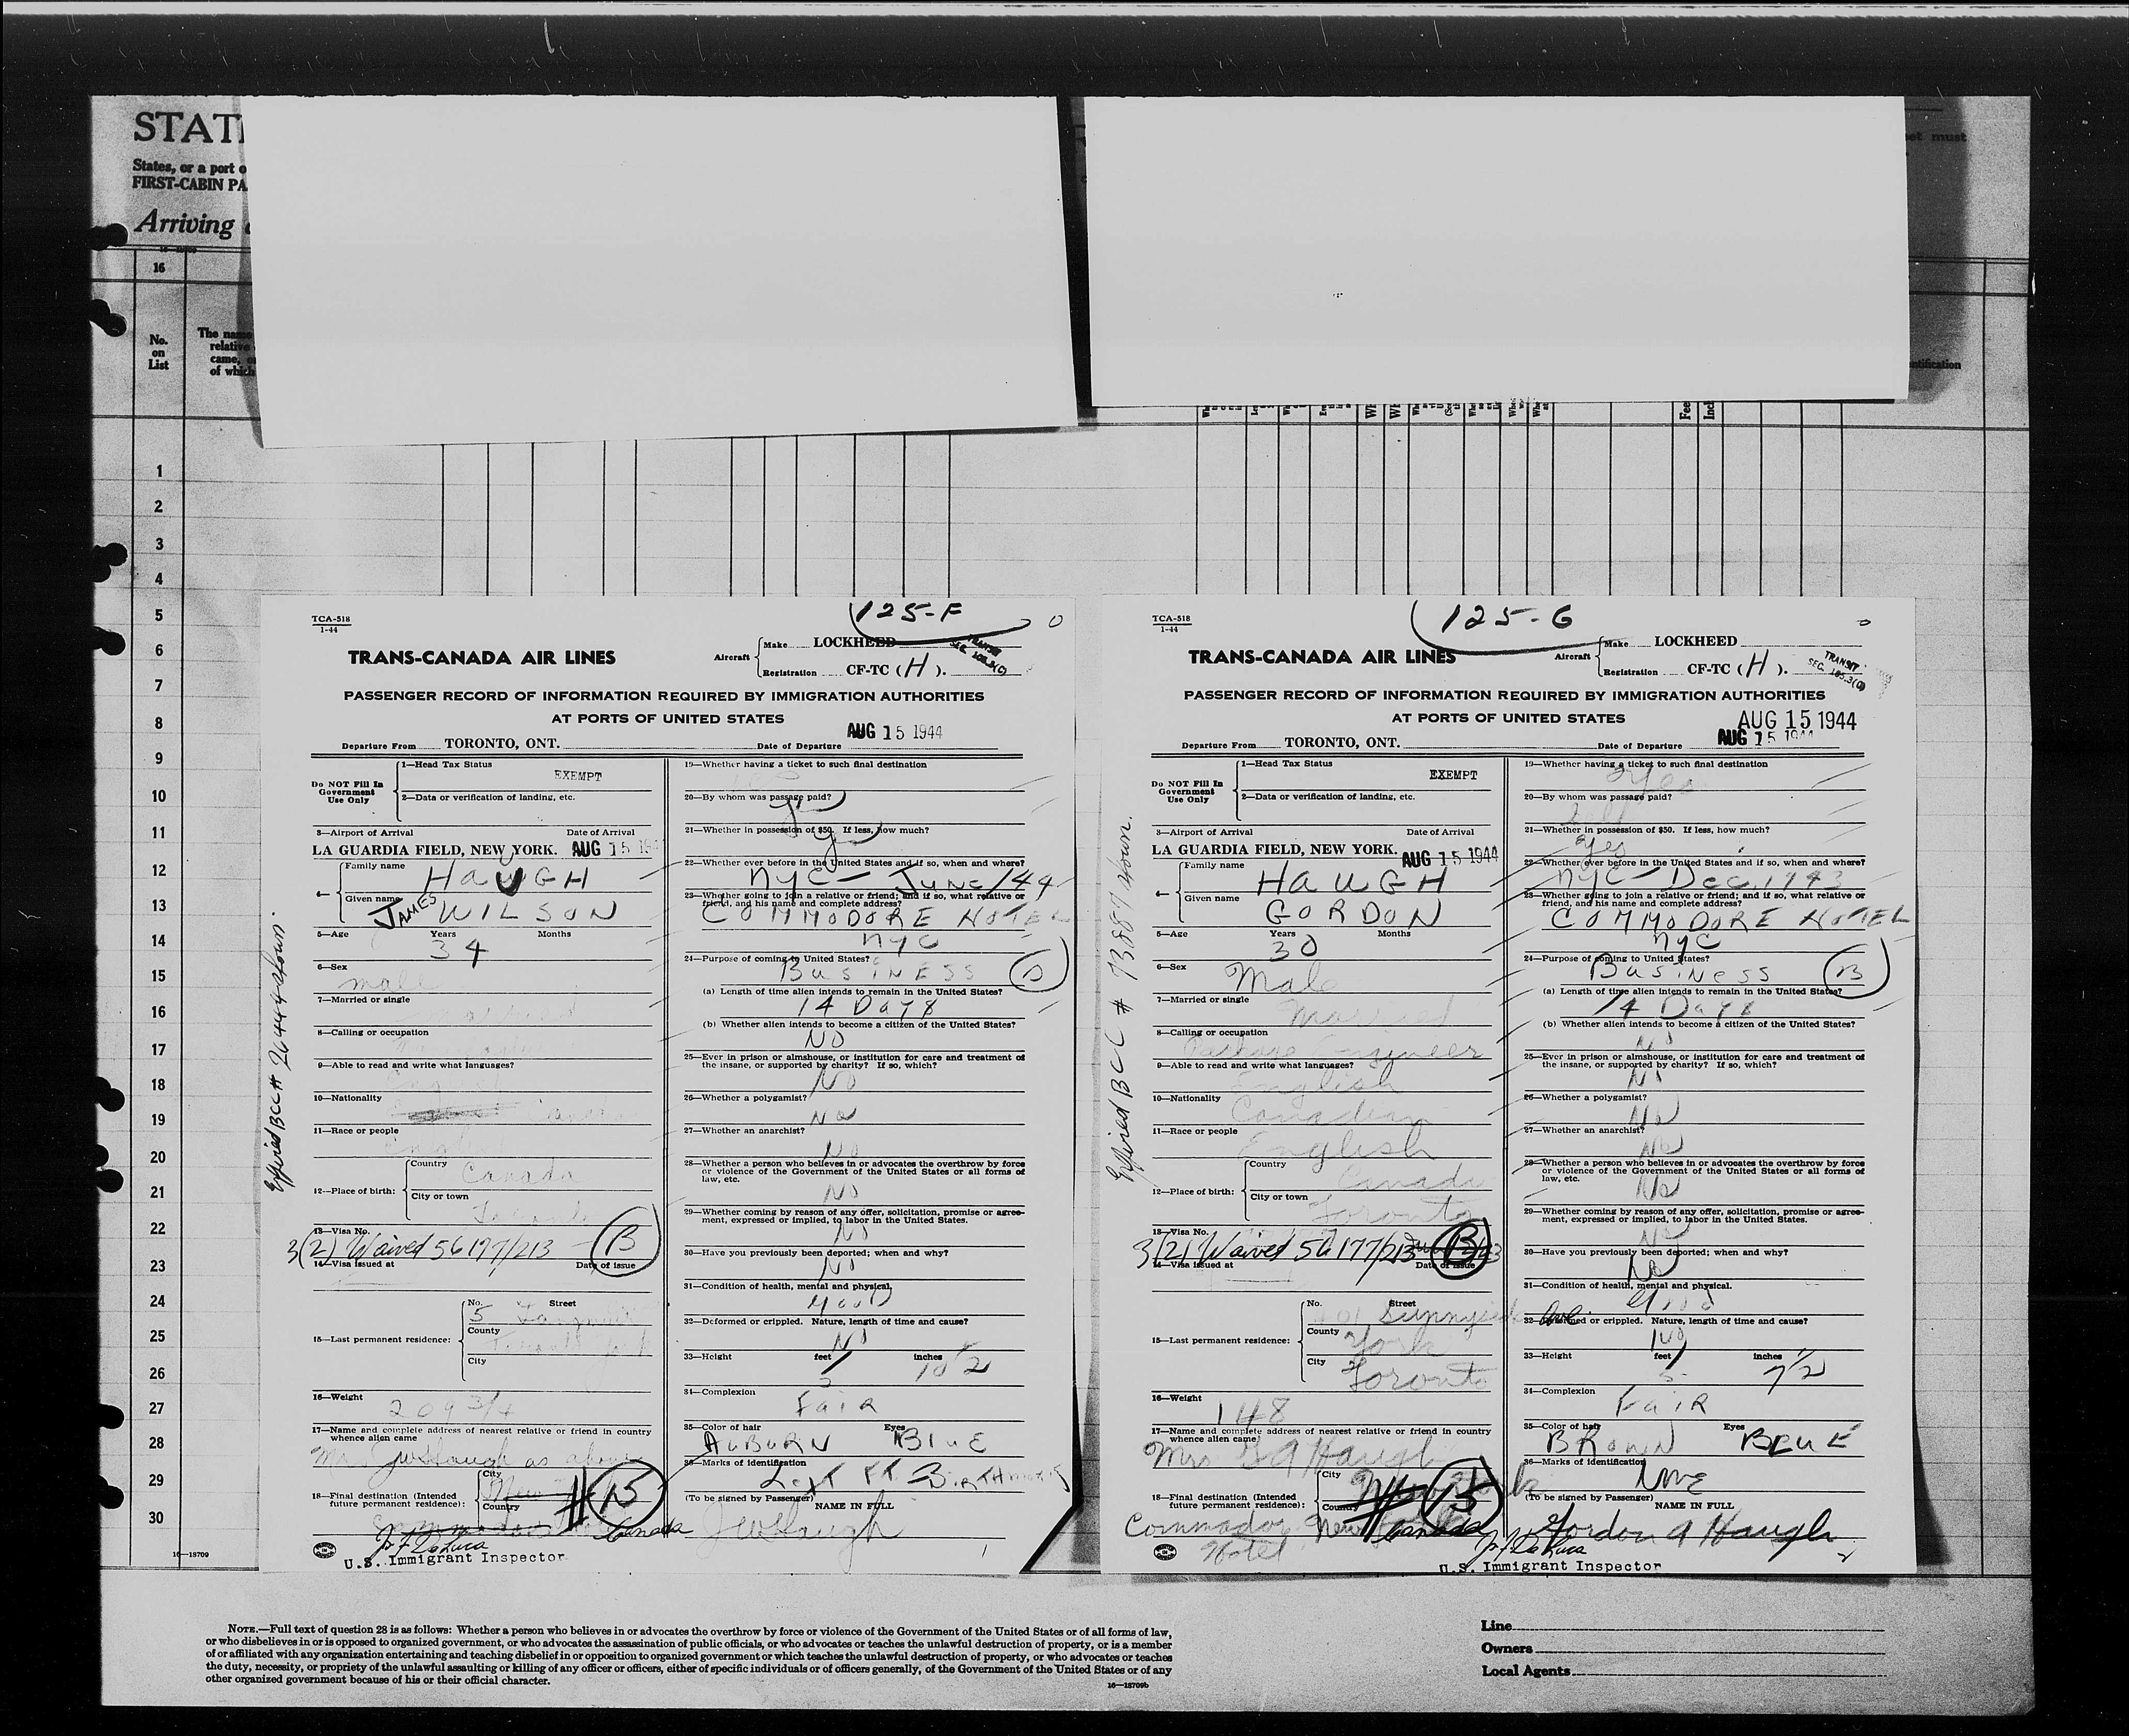 STAT
States, or a port o
FIRST-CABIN PA
Arriving
16
No.
on
List
The name
relative
came, o
of which
et must
ntification
Fee
Incl
1
2
3
4
5
6
7
8
9
10
11
12
13
14
15
16
17
18
19
20
21
22
23
24
25
26
27
28
29
30
16—18709
125-F
TCA-518
1-44
TRANS-CANADA AIR LINES
Aircraft
Make LOCKHEED
Registration CF-TC (H).
TRANSIT
PASSENGER RECORD OF INFORMATION REQUIRED BY IMMIGRATION AUTHORITIES
AT PORTS OF UNITED STATES
AUG 15 1944
Departure From TORONTO, ONT. Date of Departure
Do NOT Fill In
Government
Use Only
1—Head Tax Status
EXEMPT
2—Data or verification of landing, etc.
3—Airport of Arrival Date of Arrival
LA GUARDIA FIELD, NEW YORK. AUG 15 19
4—
Family name HAUGH
Given name JAMES WILSON
5—Age Years Months
34
6—Sex
male
7—Married or single
8—Calling or occupation
9—Able to read and write what languages?
10—Nationality
11—Race or people
12—Place of birth:
Country Canada
City or town
13—Visa No.
3(2) Waived 56177/213 B
14—Visa issued at Date of issue
15—Last permanent residence:
No. Street
5
County
City
16—Weight
209 3/4
17—Name and complete address of nearest relative or friend in country
whence alien came
Mrs JW Haugh as above
18—Final destination (Intended
future permanent residence):
City
New
Country
Canada
U.S. Immigrant Inspector
Expired BCC# 26444 Shown.
19—Whether having a ticket to such final destination
20—By whom was passage paid?
21—Whether in possession of $50. If less, how much?
22—Whether ever before in the United States and if so, when and where?
NYC — JUNE/44
23—Whether going to join a relative or friend; and if so, what relative or
friend, and his name and complete address?
COMMODORE HOTEL
NYC
24—Purpose of coming to United States?
BUSINESS
(a) Length of time alien intends to remain in the United States?
14 Days
(b) Whether alien intends to become a citizen of the United States?
NO
25—Ever in prison or almshouse, or institution for care and treatment of
the insane, or supported by charity? If so, which?
No
26—Whether a polygamist?
No
27—Whether an anarchist?
No
28—Whether a person who believes in or advocates the overthrow by force
or violence of the Government of the United States or all forms of
law, etc.
No
29—Whether coming by reason of any offer, solicitation, promise or agree-
ment, expressed or implied, to labor in the United States.
No
30—Have you previously been deported; when and why?
No
31—Condition of health, mental and physical.
Good
32—Deformed or crippled. Nature, length of time and cause?
No
33—Height feet inches
5 10 1/2
34—Complexion
FAIR
35—Color of hair Eyes
AUBURN BLUE
36—Marks of identification
LEFT FT. BIRTHMARK
(To be signed by Passenger)
NAME IN FULL
JW Haugh
125-G
TCA-518
1-44
TRANS-CANADA AIR LINES
Aircraft
Make LOCKHEED
Registration CF-TC (H).
TRANSIT
PASSENGER RECORD OF INFORMATION REQUIRED BY IMMIGRATION AUTHORITIES
AT PORTS OF UNITED STATES
AUG 15 1944
AUG 15 1944
Departure From TORONTO, ONT. Date of Departure
Do NOT Fill In
Government
Use Only
1—Head Tax Status
EXEMPT
2—Data or verification of landing, etc.
3—Airport of Arrival Date of Arrival
LA GUARDIA FIELD, NEW YORK. AUG 15 1944
4—
Family name HAUGH
Given name GORDON
5—Age Years Months
30
6—Sex
Male
7—Married or single
Married
8—Calling or occupation
Engineer
9—Able to read and write what languages?
English
10—Nationality
Canadian
11—Race or people
English
12—Place of birth:
Country Canada
City or town Toronto
13—Visa No.
3(2) Waived 56177/213 B
14—Visa issued at Date of issue
15—Last permanent residence:
No. Street
Sunnyside Ave.
County York
City Toronto
16—Weight
148
17—Name and complete address of nearest relative or friend in country
whence alien came
Mrs G A Haugh
18—Final destination (Intended
future permanent residence):
City New York
Country
Commodore New Canada
Hotel
U.S. Immigrant Inspector
Expired BCC # 73887 shown.
19—Whether having a ticket to such final destination
Yes
20—By whom was passage paid?
21—Whether in possession of $50. If less, how much?
Yes
22—Whether ever before in the United States and if so, when and where?
NYC — Dec. 1943
23—Whether going to join a relative or friend; and if so, what relative or
friend, and his name and complete address?
COMMODORE HOTEL
NYC
24—Purpose of coming to United States?
BUSINESS B
(a) Length of time alien intends to remain in the United States?
14 Days
(b) Whether alien intends to become a citizen of the United States?
No
25—Ever in prison or almshouse, or institution for care and treatment of
the insane, or supported by charity? If so, which?
No
26—Whether a polygamist?
No
27—Whether an anarchist?
No
28—Whether a person who believes in or advocates the overthrow by force
or violence of the Government of the United States or all forms of
law, etc.
No
29—Whether coming by reason of any offer, solicitation, promise or agree-
ment, expressed or implied, to labor in the United States.
No
30—Have you previously been deported; when and why?
No
31—Condition of health, mental and physical.
Good
32—Deformed or crippled. Nature, length of time and cause?
No
33—Height feet inches
5 7 1/2
34—Complexion
FAIR
35—Color of hair Eyes
BROWN BLUE
36—Marks of identification
NONE
(To be signed by Passenger)
NAME IN FULL
Gordon A Haugh
NOTE.—Full text of question 28 is as follows: Whether a person who believes in or advocates the overthrow by force or violence of the Government of the United States or of all forms of law,
or who disbelieves in or is opposed to organized government, or who advocates the assassination of public officials, or who advocates or teaches the unlawful destruction of property, or is a member
of or affiliated with any organization entertaining and teaching disbelief in or opposition to organized government or which teaches the unlawful destruction of property, or who advocates or teaches
the duty, necessity, or propriety of the unlawful assaulting or killing of any officer or officers, either of specific individuals or of officers generally, of the Government of the United States or of any
other organized government because of his or their official character.
16—18709b
Line
Owners
Local Agents